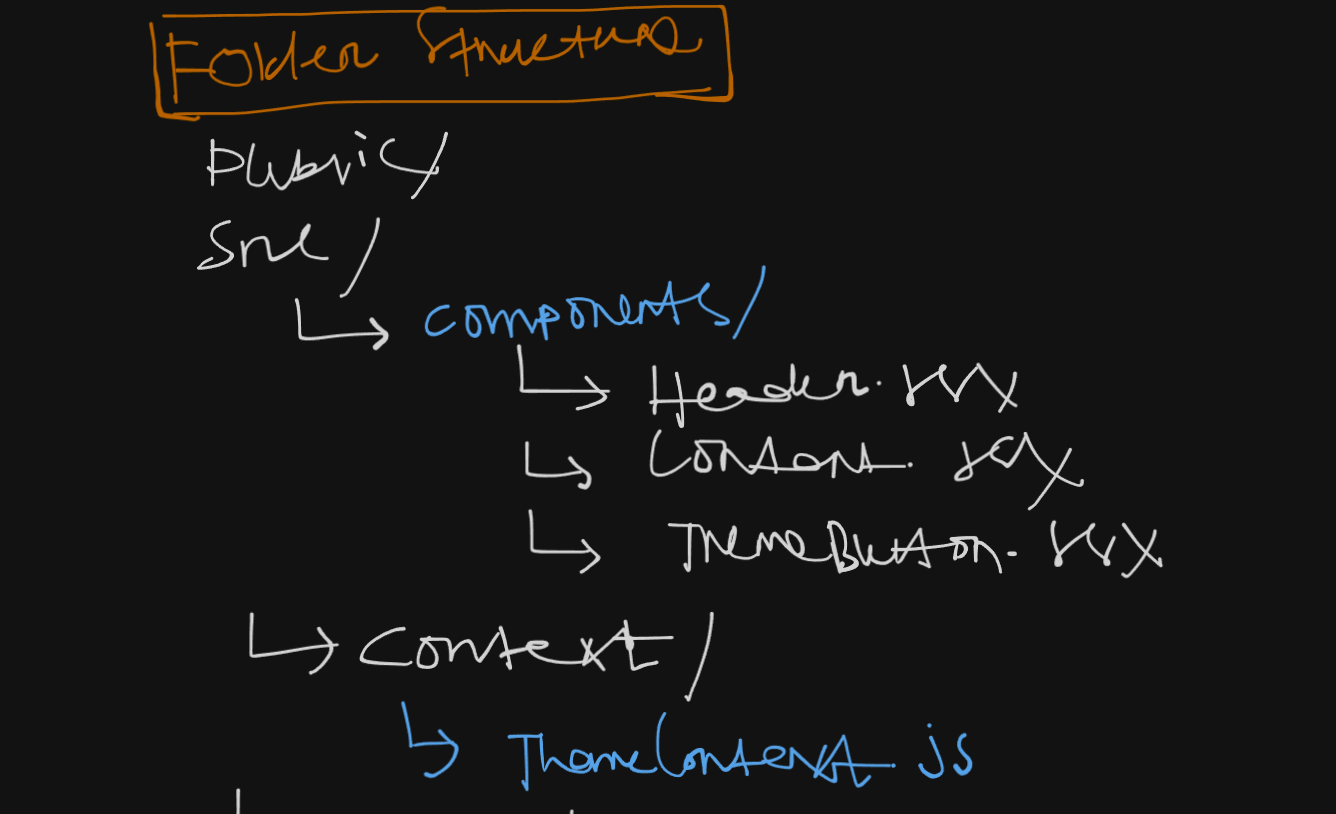 Folder Structure
Public/
Src/
components/
Header.jsx
Content.jsx
ThemeButton.jsx
Context/
ThemeContext.js